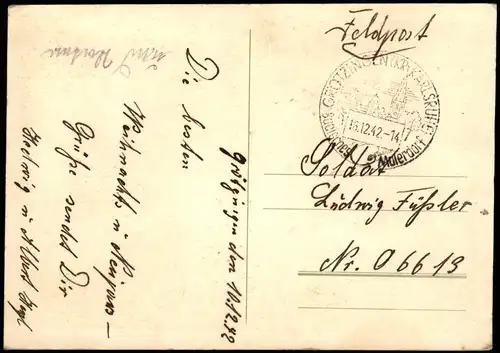 Feldpost
GRÖTZINGEN (KR. KARLSRUHE)
16.12.42-14
Malerdorf
Soldat
Ludwig Füßler
Nr. 06613
den 10.12.42
Die besten
Weihnachts u Neujahrs-
Grüße sendet Dir
Hedwig u Albert